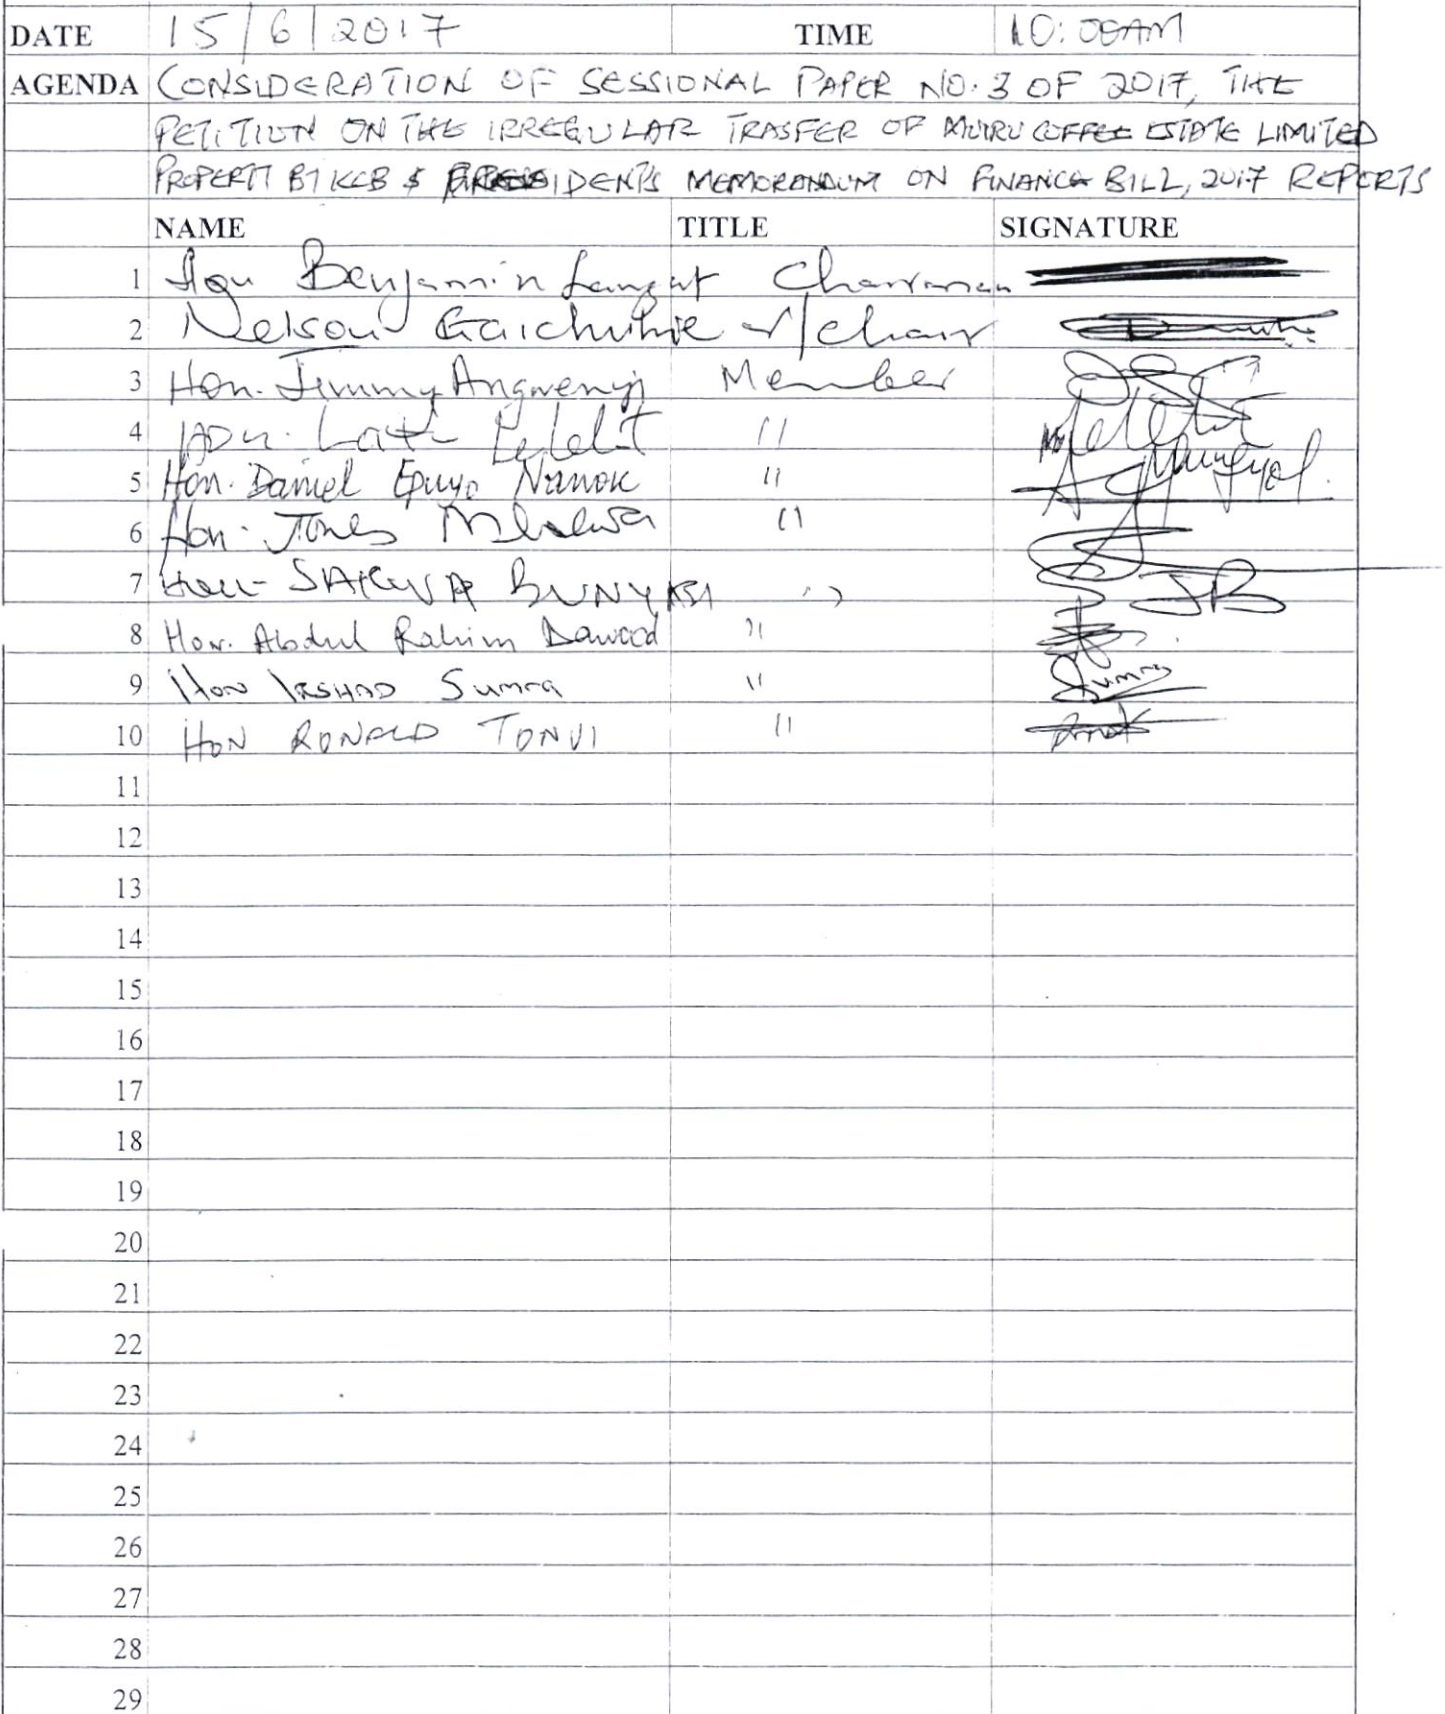 DATE 15/6/2017 TIME 10:00AM
AGENDA CONSIDERATION OF SESSIONAL PAPER NO. 3 OF 2017, THE
PETITION ON THE IRREGULAR TRASFER OF MUIRU COFFEE ESTATE LIMITED
PROPERTY BY KCB & PRESIDENT'S MEMORANDUM ON FINANCE BILL, 2017 REPORTS
NAME TITLE SIGNATURE
1 Hon Benjamin Langat Chairman
2 Nelson Gaichuhie v/chair
3 Hon. Jimmy Angwenyi Member
4 Hon. Lati Lelelit "
5 Hon. Daniel Epuyo Nanok "
6 Hon. Jones Mlolwa "
7 Hon- SAKWA BUNYASI "
8 Hon. Abdul Rahim Dawood "
9 Hon IRSHAD Sumra " Sumra
10 HON RONALD TONUI "
11
12
13
14
15
16
17
18
19
20
21
22
23
24
25
26
27
28
29